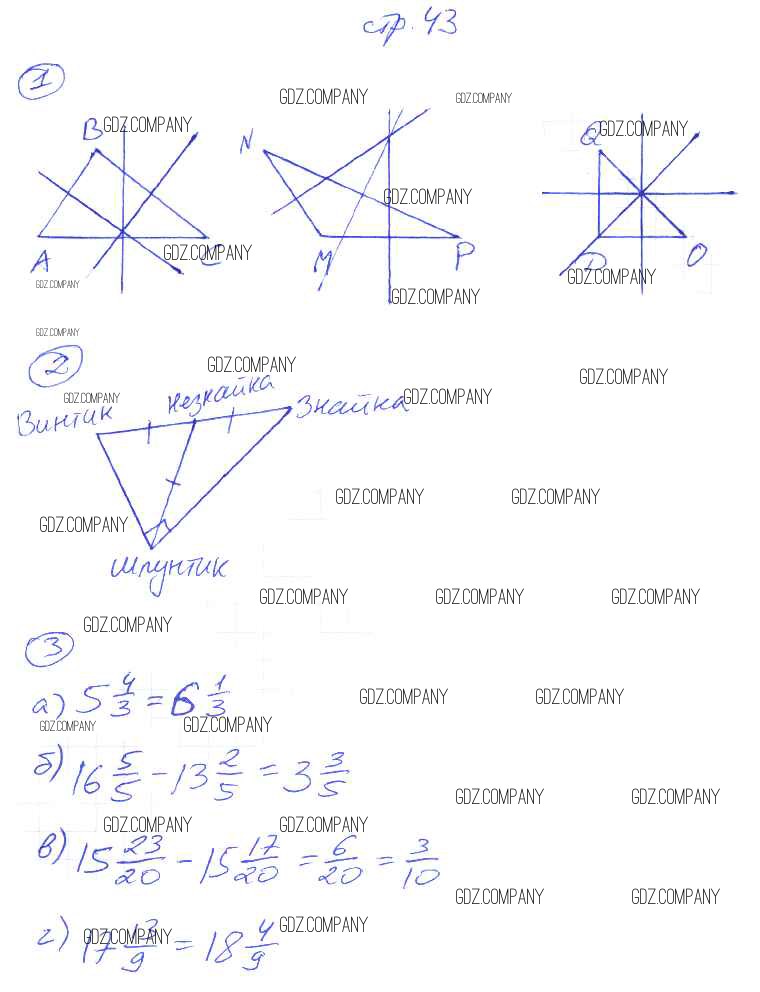 стр. 43
1
GDZ.COMPANY GDZ.COMPANY
B GDZ.COMPANY N Q GDZ.COMPANY
GDZ.COMPANY
A GDZ.COMPANY C M P D O
GDZ.COMPANY GDZ.COMPANY GDZ.COMPANY
GDZ.COMPANY
2 GDZ.COMPANY GDZ.COMPANY
GDZ.COMPANY Незнайка GDZ.COMPANY
Винтик Знайка
GDZ.COMPANY GDZ.COMPANY
GDZ.COMPANY
Шпунтик
GDZ.COMPANY GDZ.COMPANY GDZ.COMPANY
GDZ.COMPANY
3
а) 5 4/3 = 6 1/3 GDZ.COMPANY GDZ.COMPANY
GDZ.COMPANY GDZ.COMPANY
б) 16 5/5 - 13 2/5 = 3 3/5
GDZ.COMPANY GDZ.COMPANY
GDZ.COMPANY GDZ.COMPANY
в) 15 23/20 - 15 17/20 = 6/20 = 3/10
GDZ.COMPANY GDZ.COMPANY
GDZ.COMPANY GDZ.COMPANY
г) 17 13/9 = 18 4/9